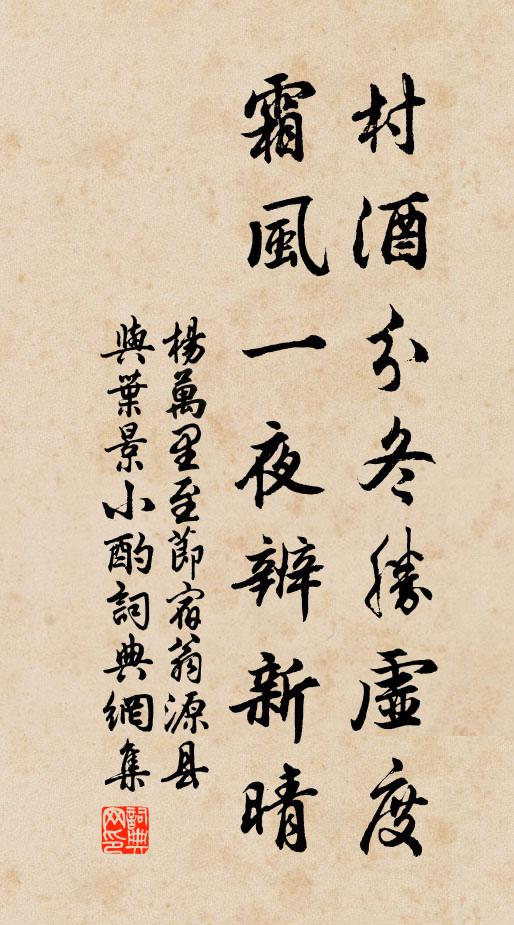 村酒分冬勝虛度
霜風一夜辨新晴
楊萬里至節宿翁源县
與葉景小酌詞典網集
詞典网印